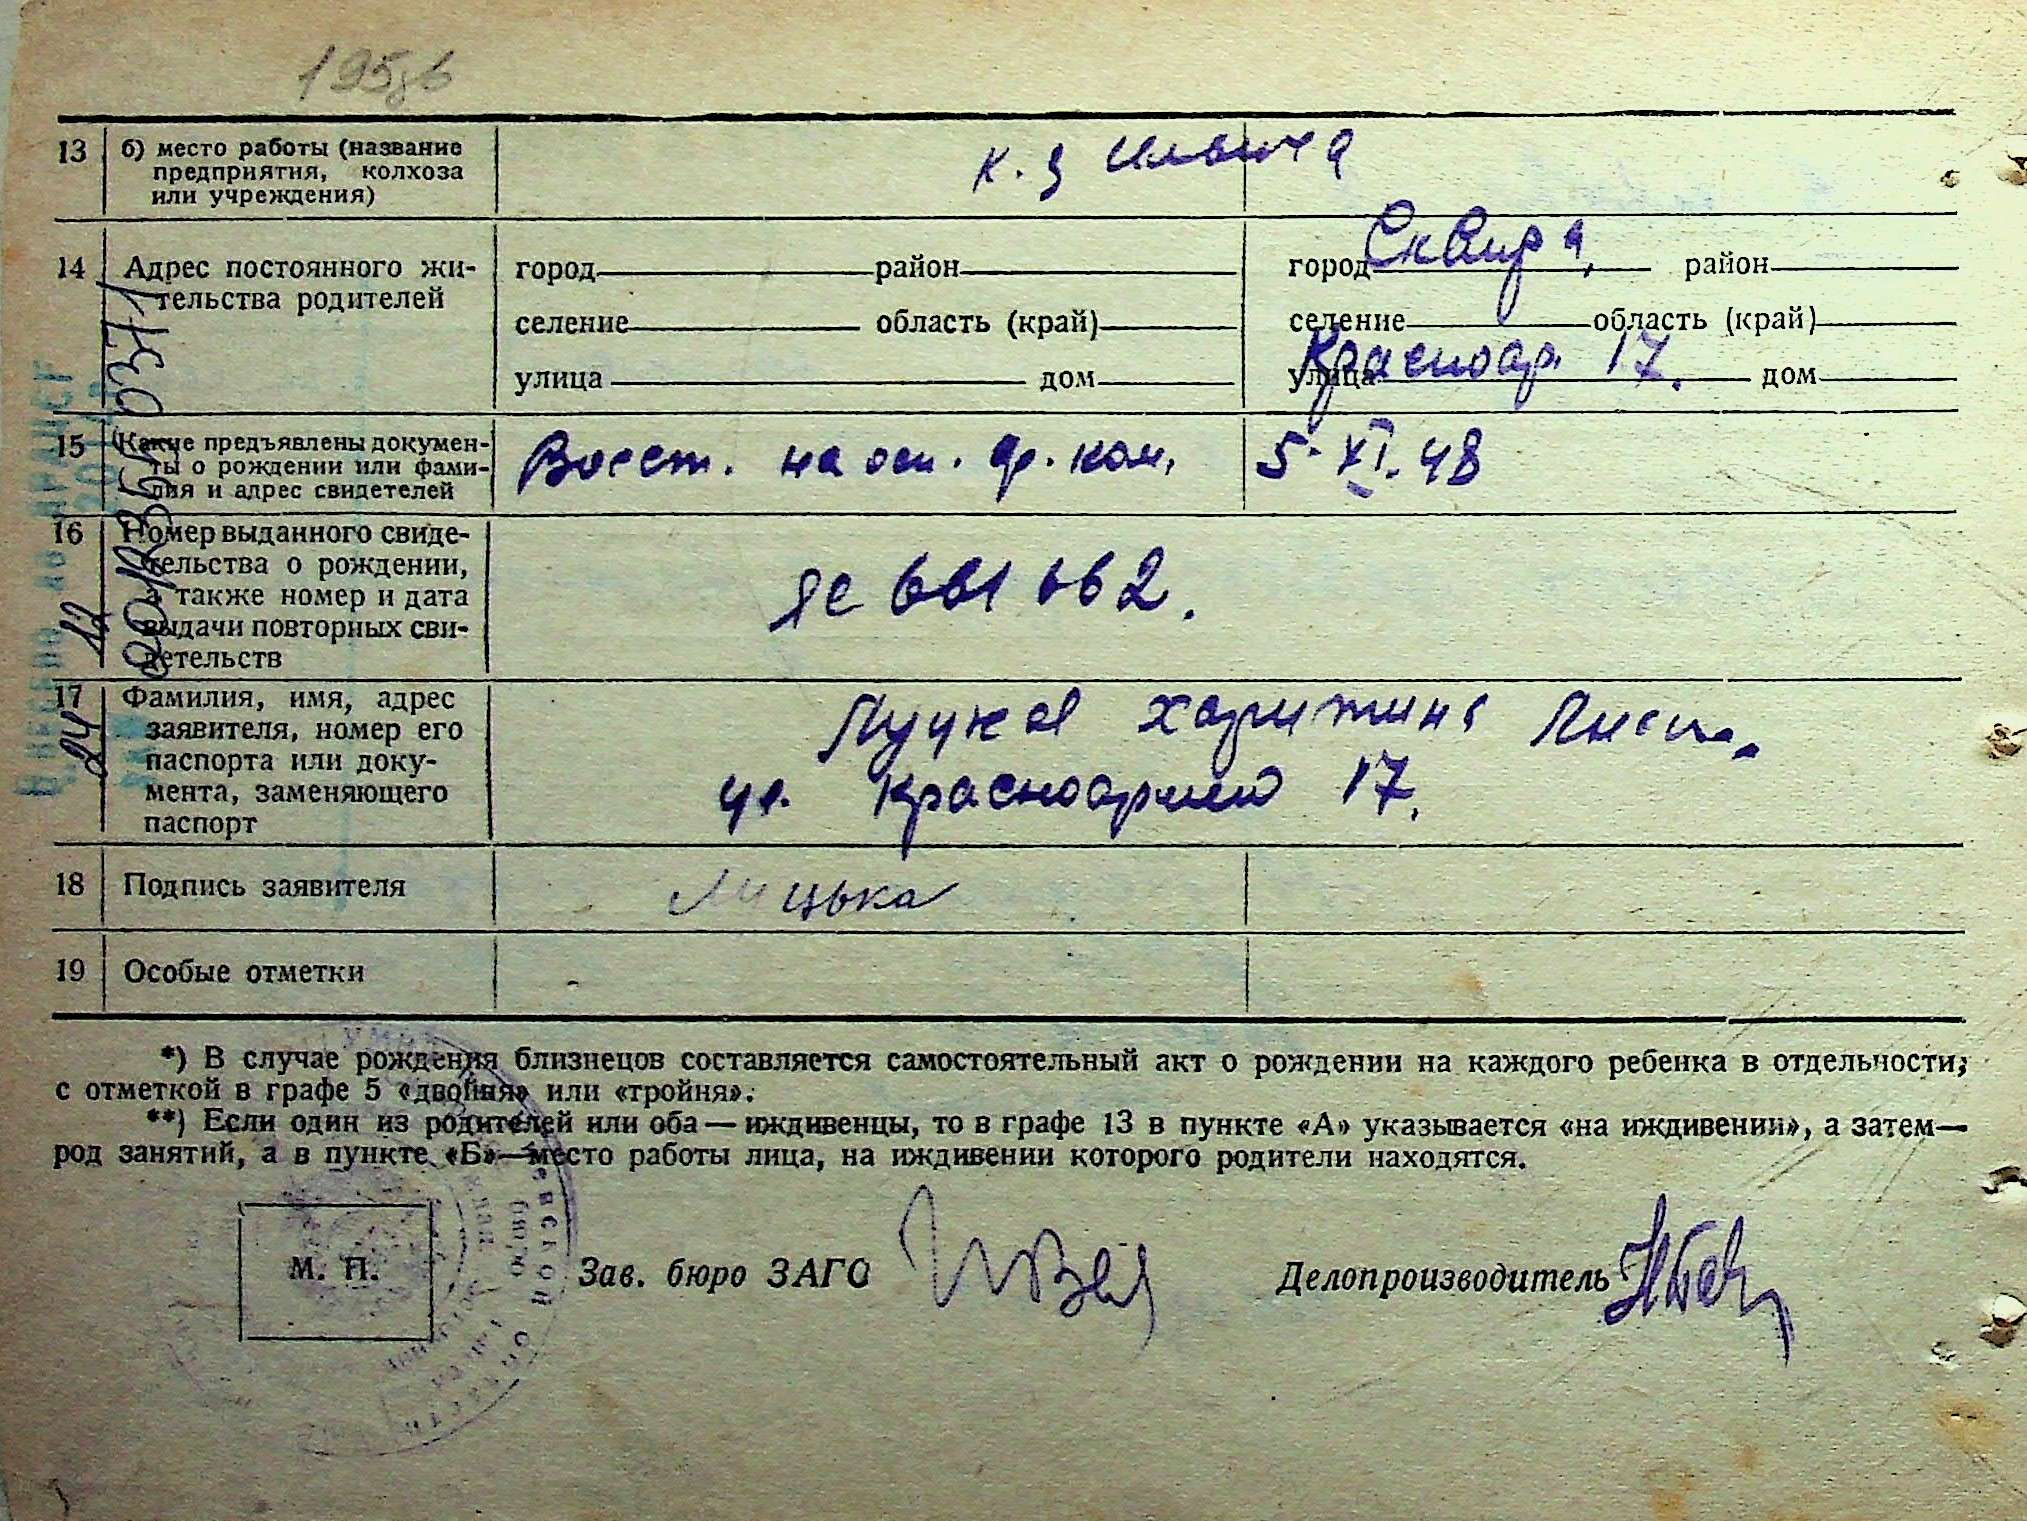 13 б) место работы (название
предприятия, колхоза
или учреждения)
к. з Ильича
14 Адрес постоянного жи-
тельства родителей
город район
селение область (край)
улица дом
город Сквира, район
селение область (край)
улица Красноар. 17. дом
15 Какие предъявлены докумен-
ты о рождении или фами-
лия и адрес свидетелей
Восст. на осн. ком. 5. XI. 48
16 Номер выданного свиде-
тельства о рождении,
а также номер и дата
выдачи повторных сви-
детельств
ЯС 661 662.
17 Фамилия, имя, адрес
заявителя, номер его
паспорта или доку-
мента, заменяющего
паспорт
Харитина
ул. Красноармею 17.
18 Подпись заявителя
19 Особые отметки
*) В случае рождения близнецов составляется самостоятельный акт о рождении на каждого ребенка в отдельности,
с отметкой в графе 5 «двойня» или «тройня».
**) Если один из родителей или оба — иждивенцы, то в графе 13 в пункте «А» указывается «на иждивении», а затем—
род занятий, а в пункте «Б»—место работы лица, на иждивении которого родители находятся.
М. П.
Зав. бюро ЗАГС
Делопроизводитель